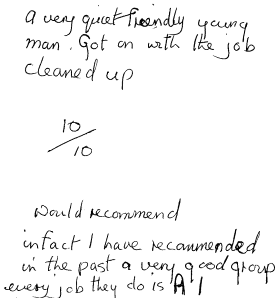 a very quiet friendly young
man. Got on with the job
cleaned up
10/10
would recommend
infact I have recommended
in the past a very good group
every job they do is A1